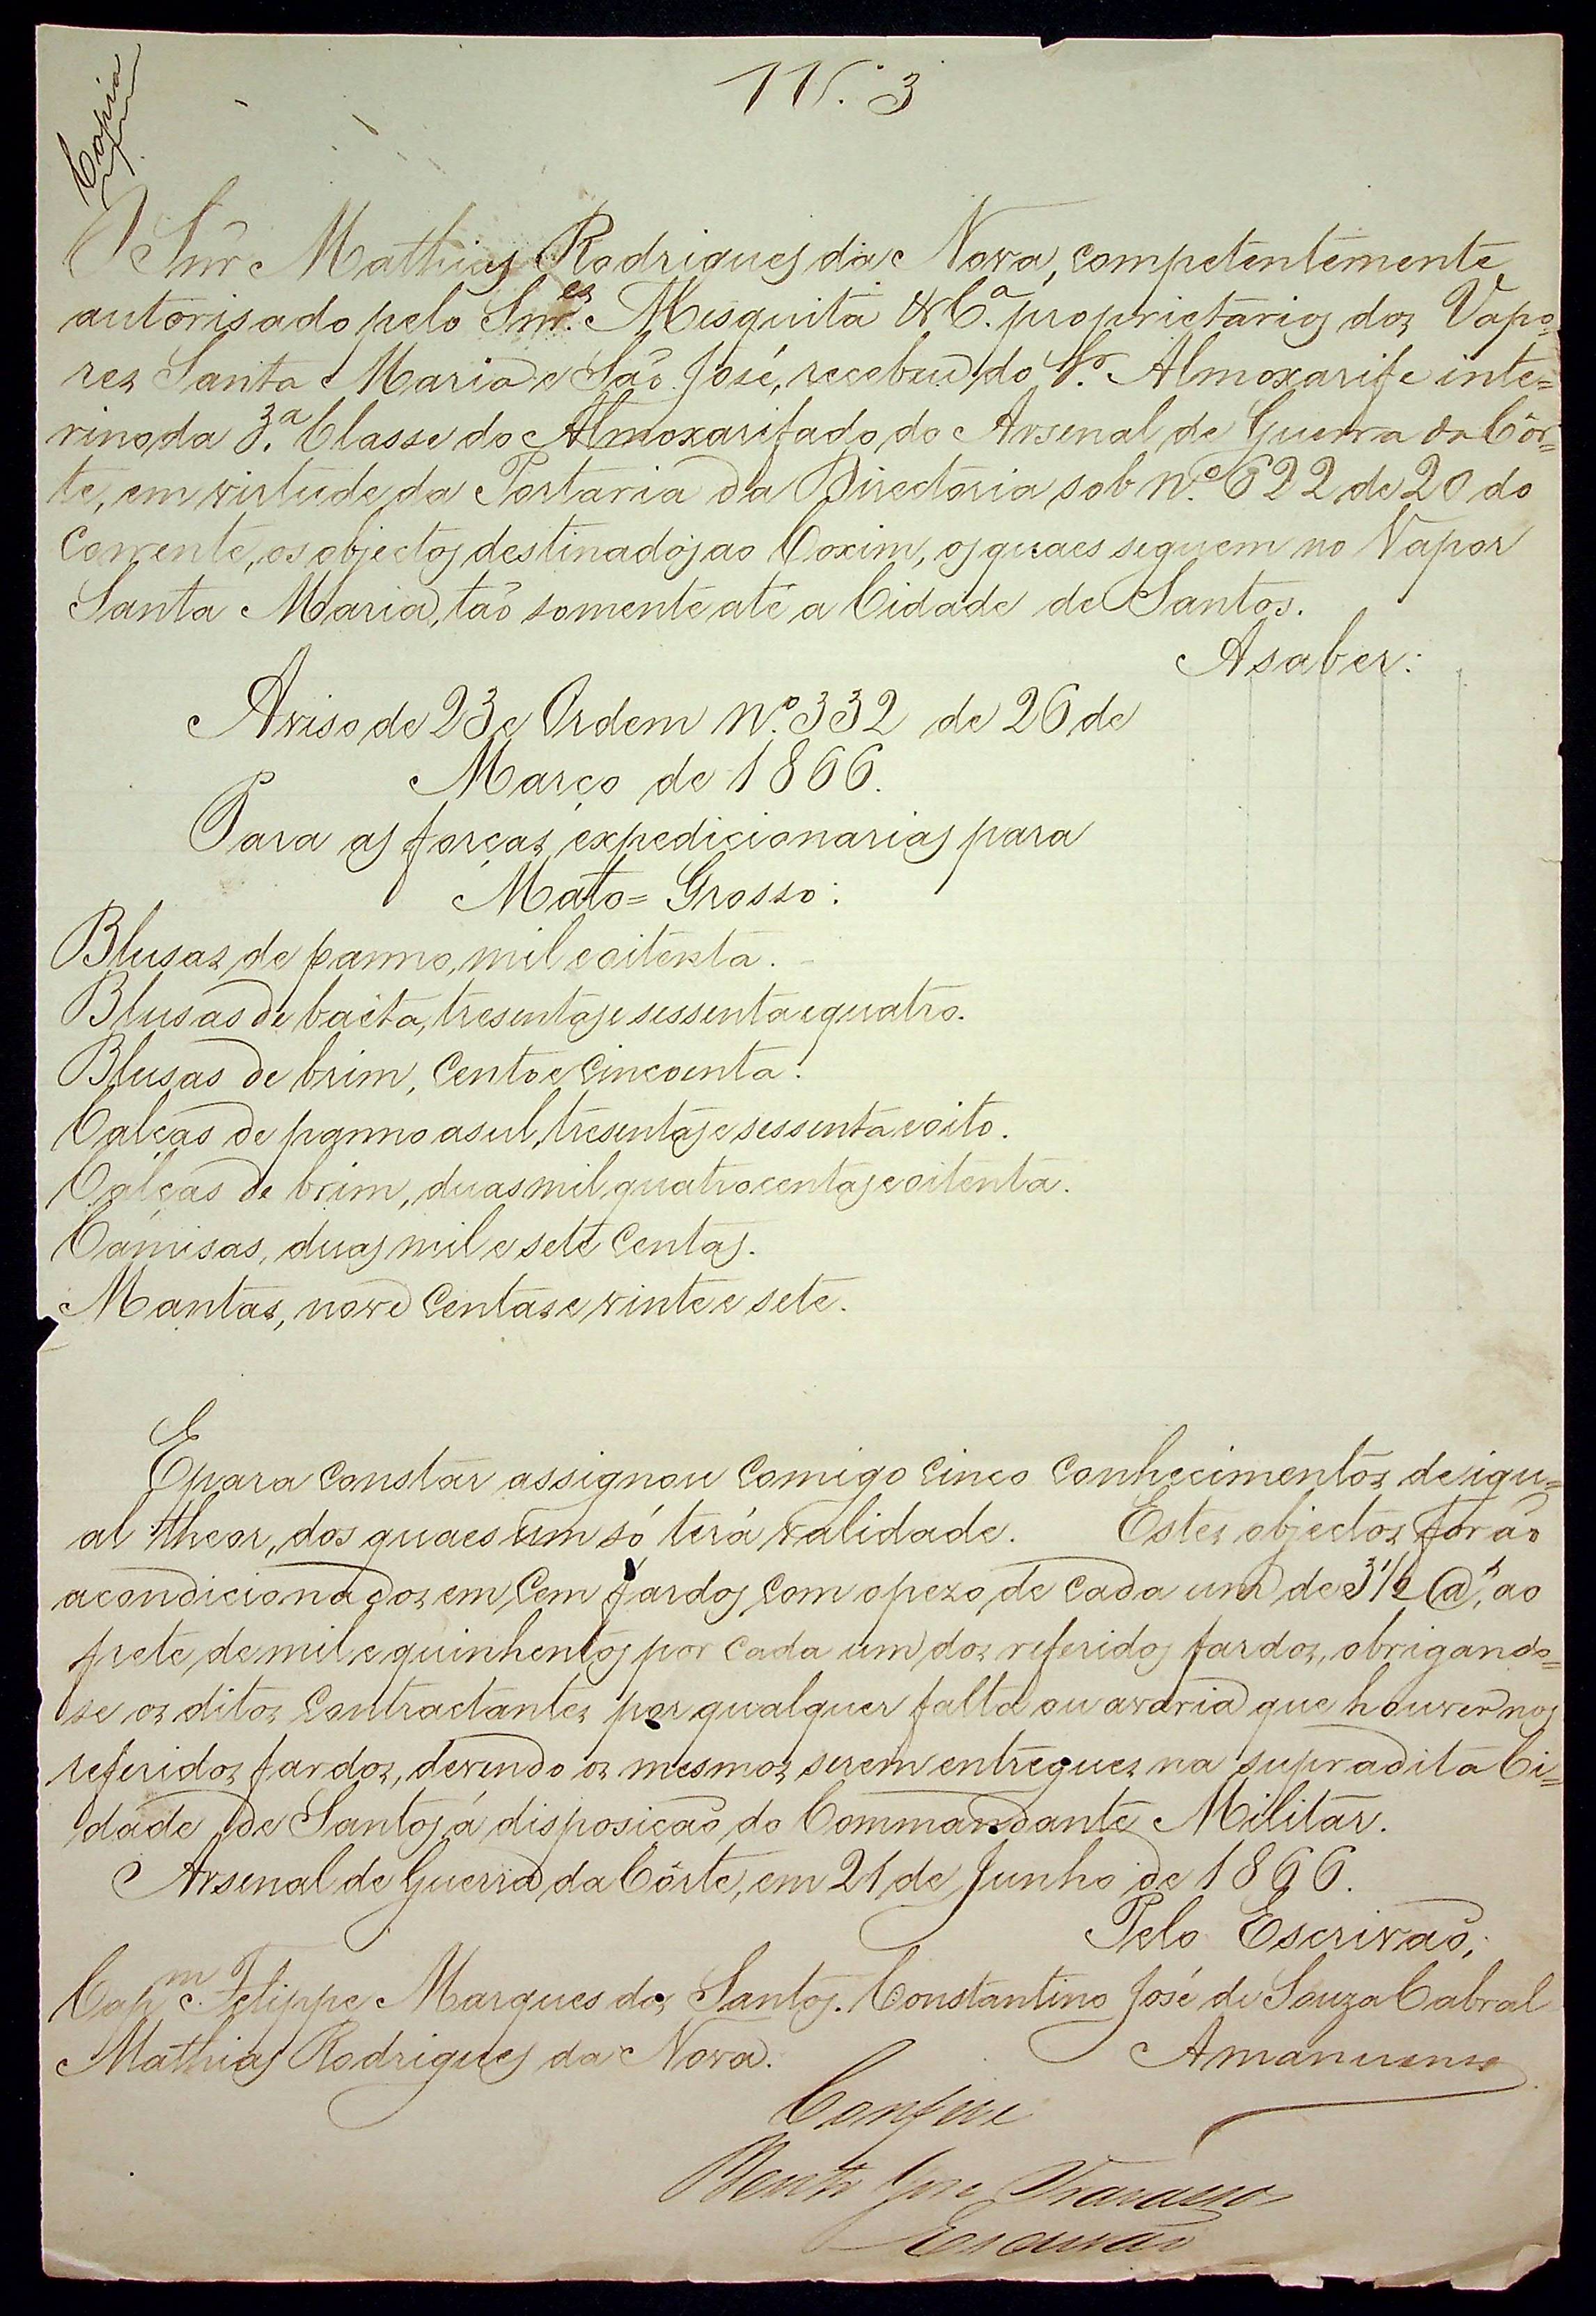 Copia
N.º 3
O Snr Mathias Rodrigues da Nova, competentemente
autorisado pelo Snr.es Mesquita & C.ª proprietarios dos Vapo=
res Santa Maria e São José, recebeu do Sr. Almoxarife inte=
rino da 3.ª Classe do Almoxarifado do Arsenal de Guerra da Côr=
te, em virtude da Portaria da Directoria sob N.º 622 de 20 do
Corrente, os objectos destinados ao Coxim, os quaes seguem no Vapor
Santa Maria, tão somente até a Cidade de Santos.
A saber:
Aviso de 23 e Ordem N.º 332 de 26 de
Março de 1866.
Para as forças expedicionarias para
Mato=Grosso:
Blusas de panno, mil e oitenta.
Blusas de baeta, tresentas e sessenta e quatro.
Blusas de brim, Cento e Cincoenta.
Calças de panno asul, tresentas e sessenta e oito.
Calças de brim, duas mil quatrocentas e oitenta.
Camisas, duas mil e sete Centas.
Mantas, nove Centas e vinte e sete.
E para constar assignou comigo cinco conhecimentos de igu=
al theor, dos quaes um só terá validade. Estes objectos forão
acondicionados em Cem fardos com o pezo de cada um de 3 1/2 @s, ao
frete de mil e quinhentos por cada um dos referidos fardos, obrigando=
se os ditos Contractantes por qualquer falta ou avaria que houver nos
referidos fardos, devendo os mesmos serem entregues na supradita Ci=
dade de Santos á disposição do Commandante Militar.
Arsenal de Guerra da Côrte, em 21 de Junho de 1866.
Pelo Escrivão,
Cap.m Felippe Marques dos Santos. Constantino José de Souza Cabral
Mathias Rodrigues da Nova. Amanuense
Confere
Bento José Travassos
Escrivão